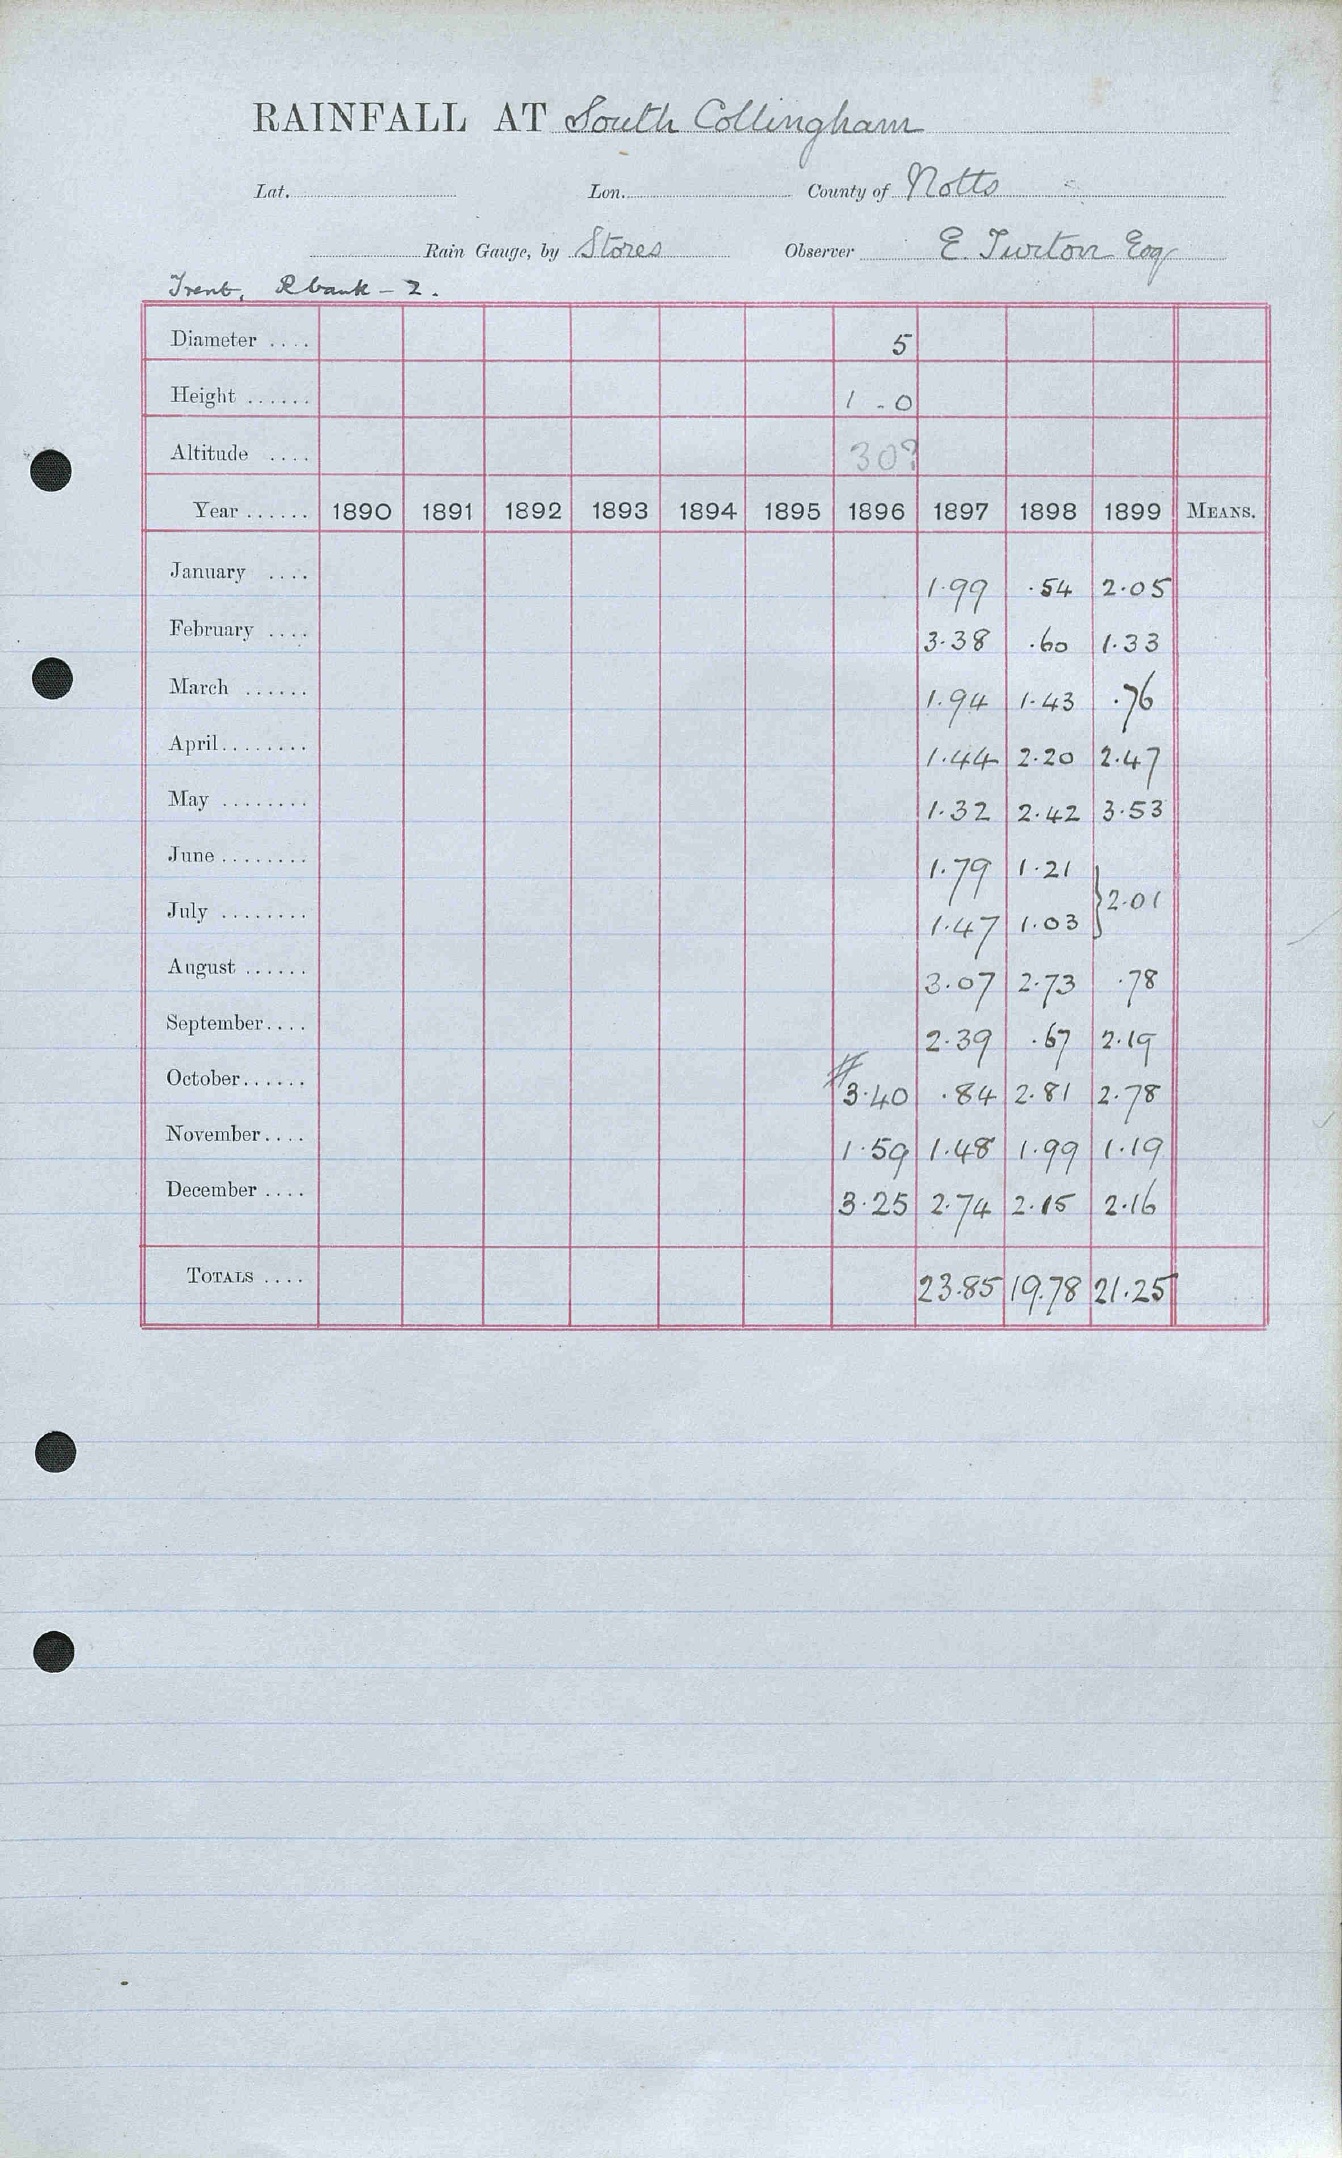 RAINFALL AT South Collingham
Lat. Lon. County of Notts
Rain Gauge, by Stores Observer E. Turton Esq
Trent, R bank - 2.
Diameter .... 5
Height ...... 1 - 0
Altitude .... 30?
Year ...... 1890 1891 1892 1893 1894 1895 1896 1897 1898 1899 MEANS.
January .... 1.99 .54 2.05
February .... 3.38 .60 1.33
March ...... 1.94 1.43 .76
April........ 1.44 2.20 2.47
May ........ 1.32 2.42 3.53
June ........ 1.79 1.21
} 2.01
July ........ 1.47 1.03
August ...... 3.07 2.73 .78
September.... 2.39 .67 2.19
October...... # 3.40 .84 2.81 2.78
November.... 1.59 1.48 1.99 1.19
December .... 3.25 2.74 2.15 2.16
TOTALS .... 23.85 19.78 21.25